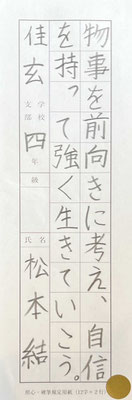 物事を前向きに考え、自信
を持って強く生きていこう。
佳玄 学校支部 四 年 級 氏名 松本結
用心・硬筆検定用紙(12字×2行)